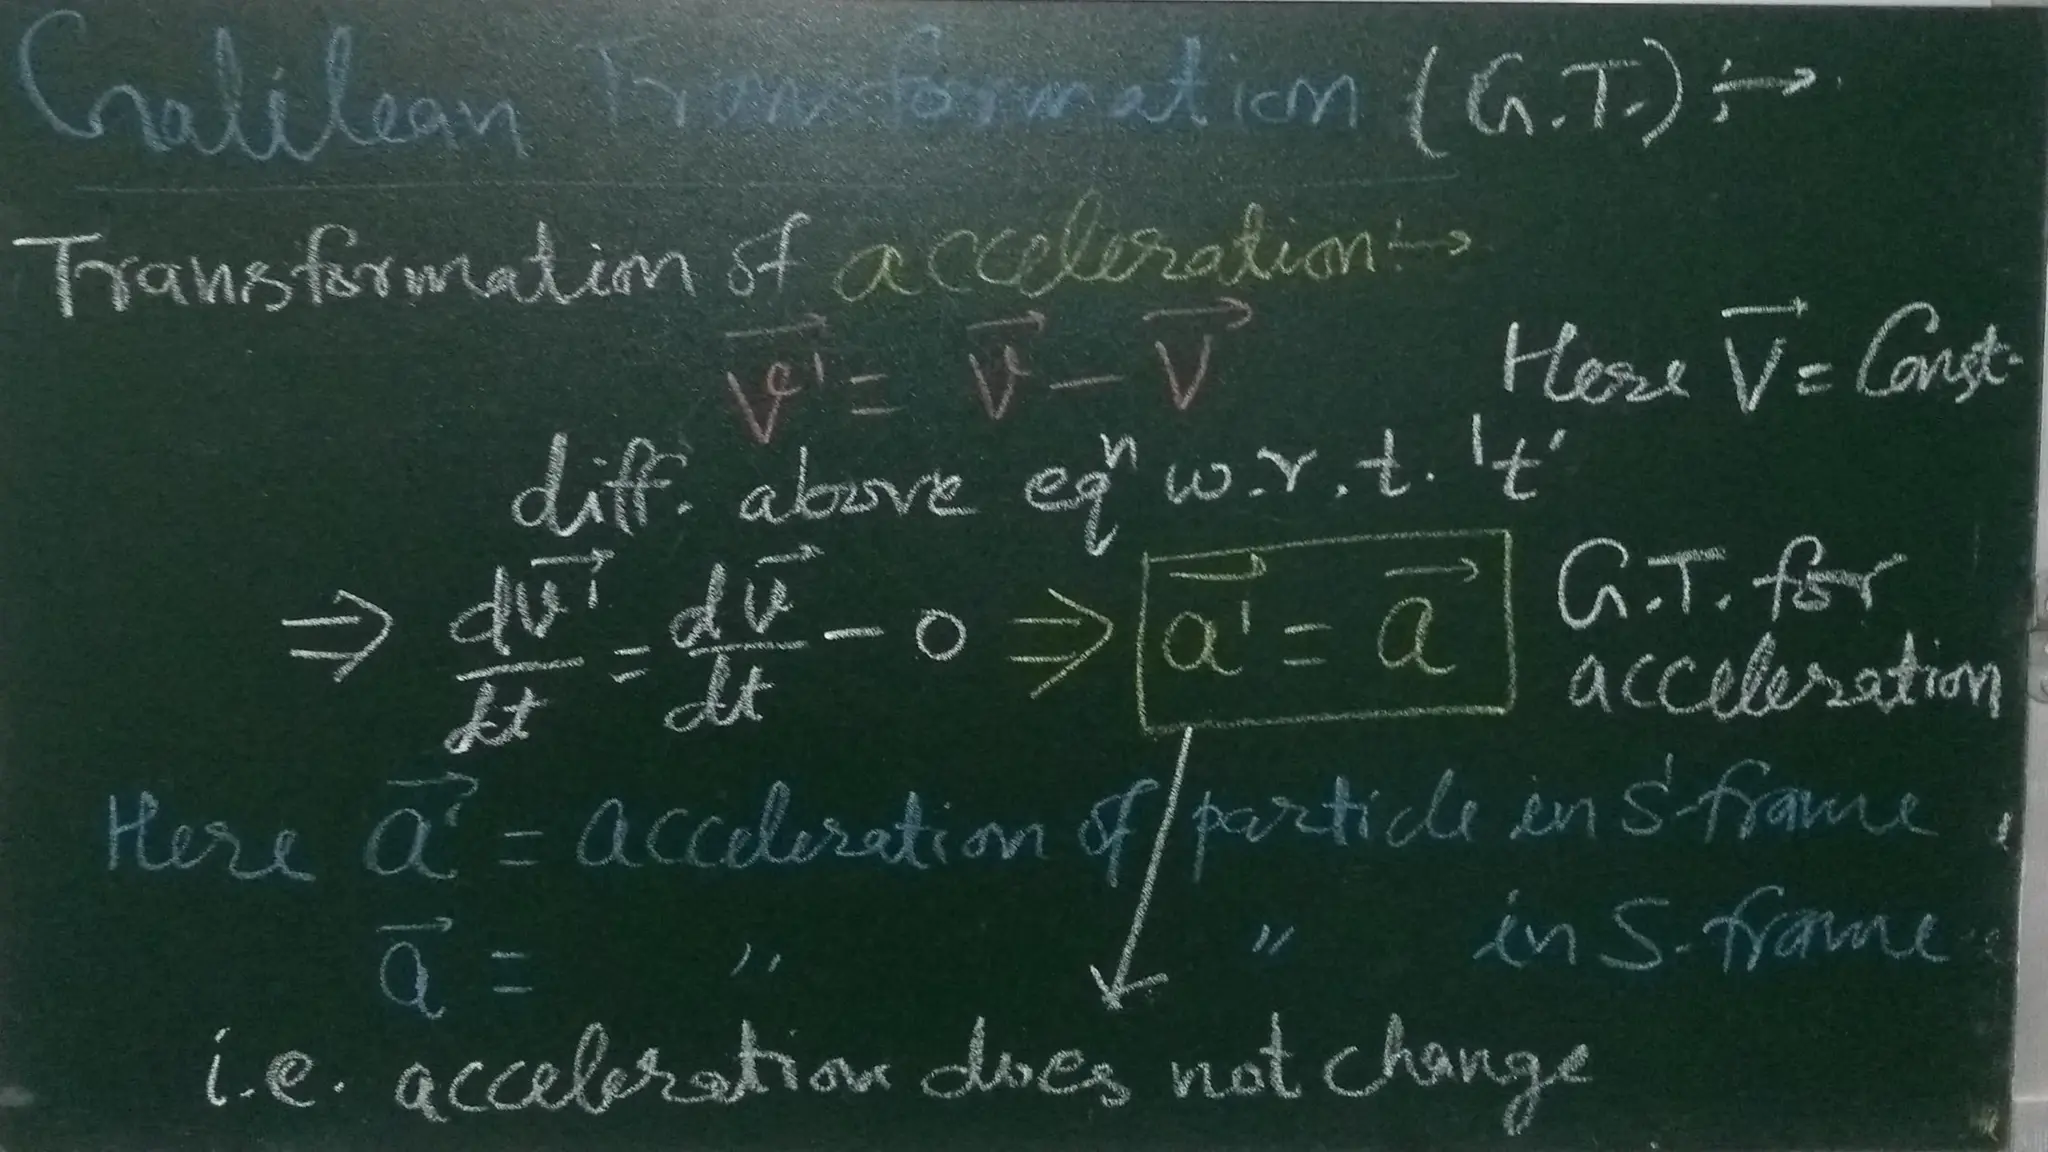 Galilean Transformation (G.T.) :→
Transformation of acceleration :→
v⃗' = v⃗ - V⃗
Here V⃗ = Const.
diff. above eqⁿ w.r.t. 't'
⇒ dv⃗'/dt = dv⃗/dt - 0 ⇒ a⃗' = a⃗
G.T. for
acceleration
Here a⃗' = acceleration of particle in S' frame
a⃗ = " " in S-frame
i.e. acceleration does not change